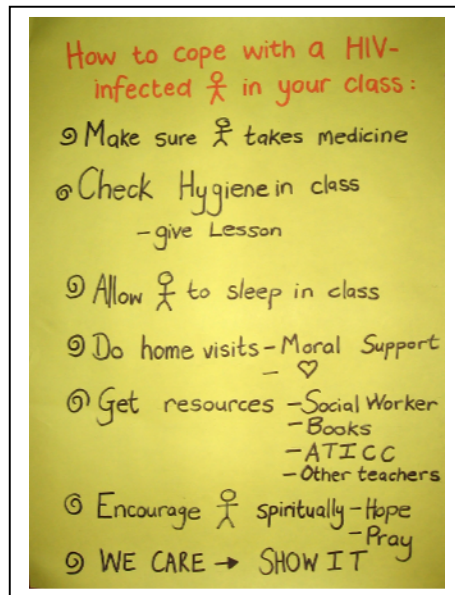 How to cope with a HIV-
infected in your class:
Make sure takes medicine
Check Hygiene in class
- give Lesson
Allow to sleep in class
Do home visits - Moral Support
- ♡
Get resources - Social Worker
- Books
- ATICC
- Other teachers
Encourage spiritually - Hope
- Pray
WE CARE → SHOW IT